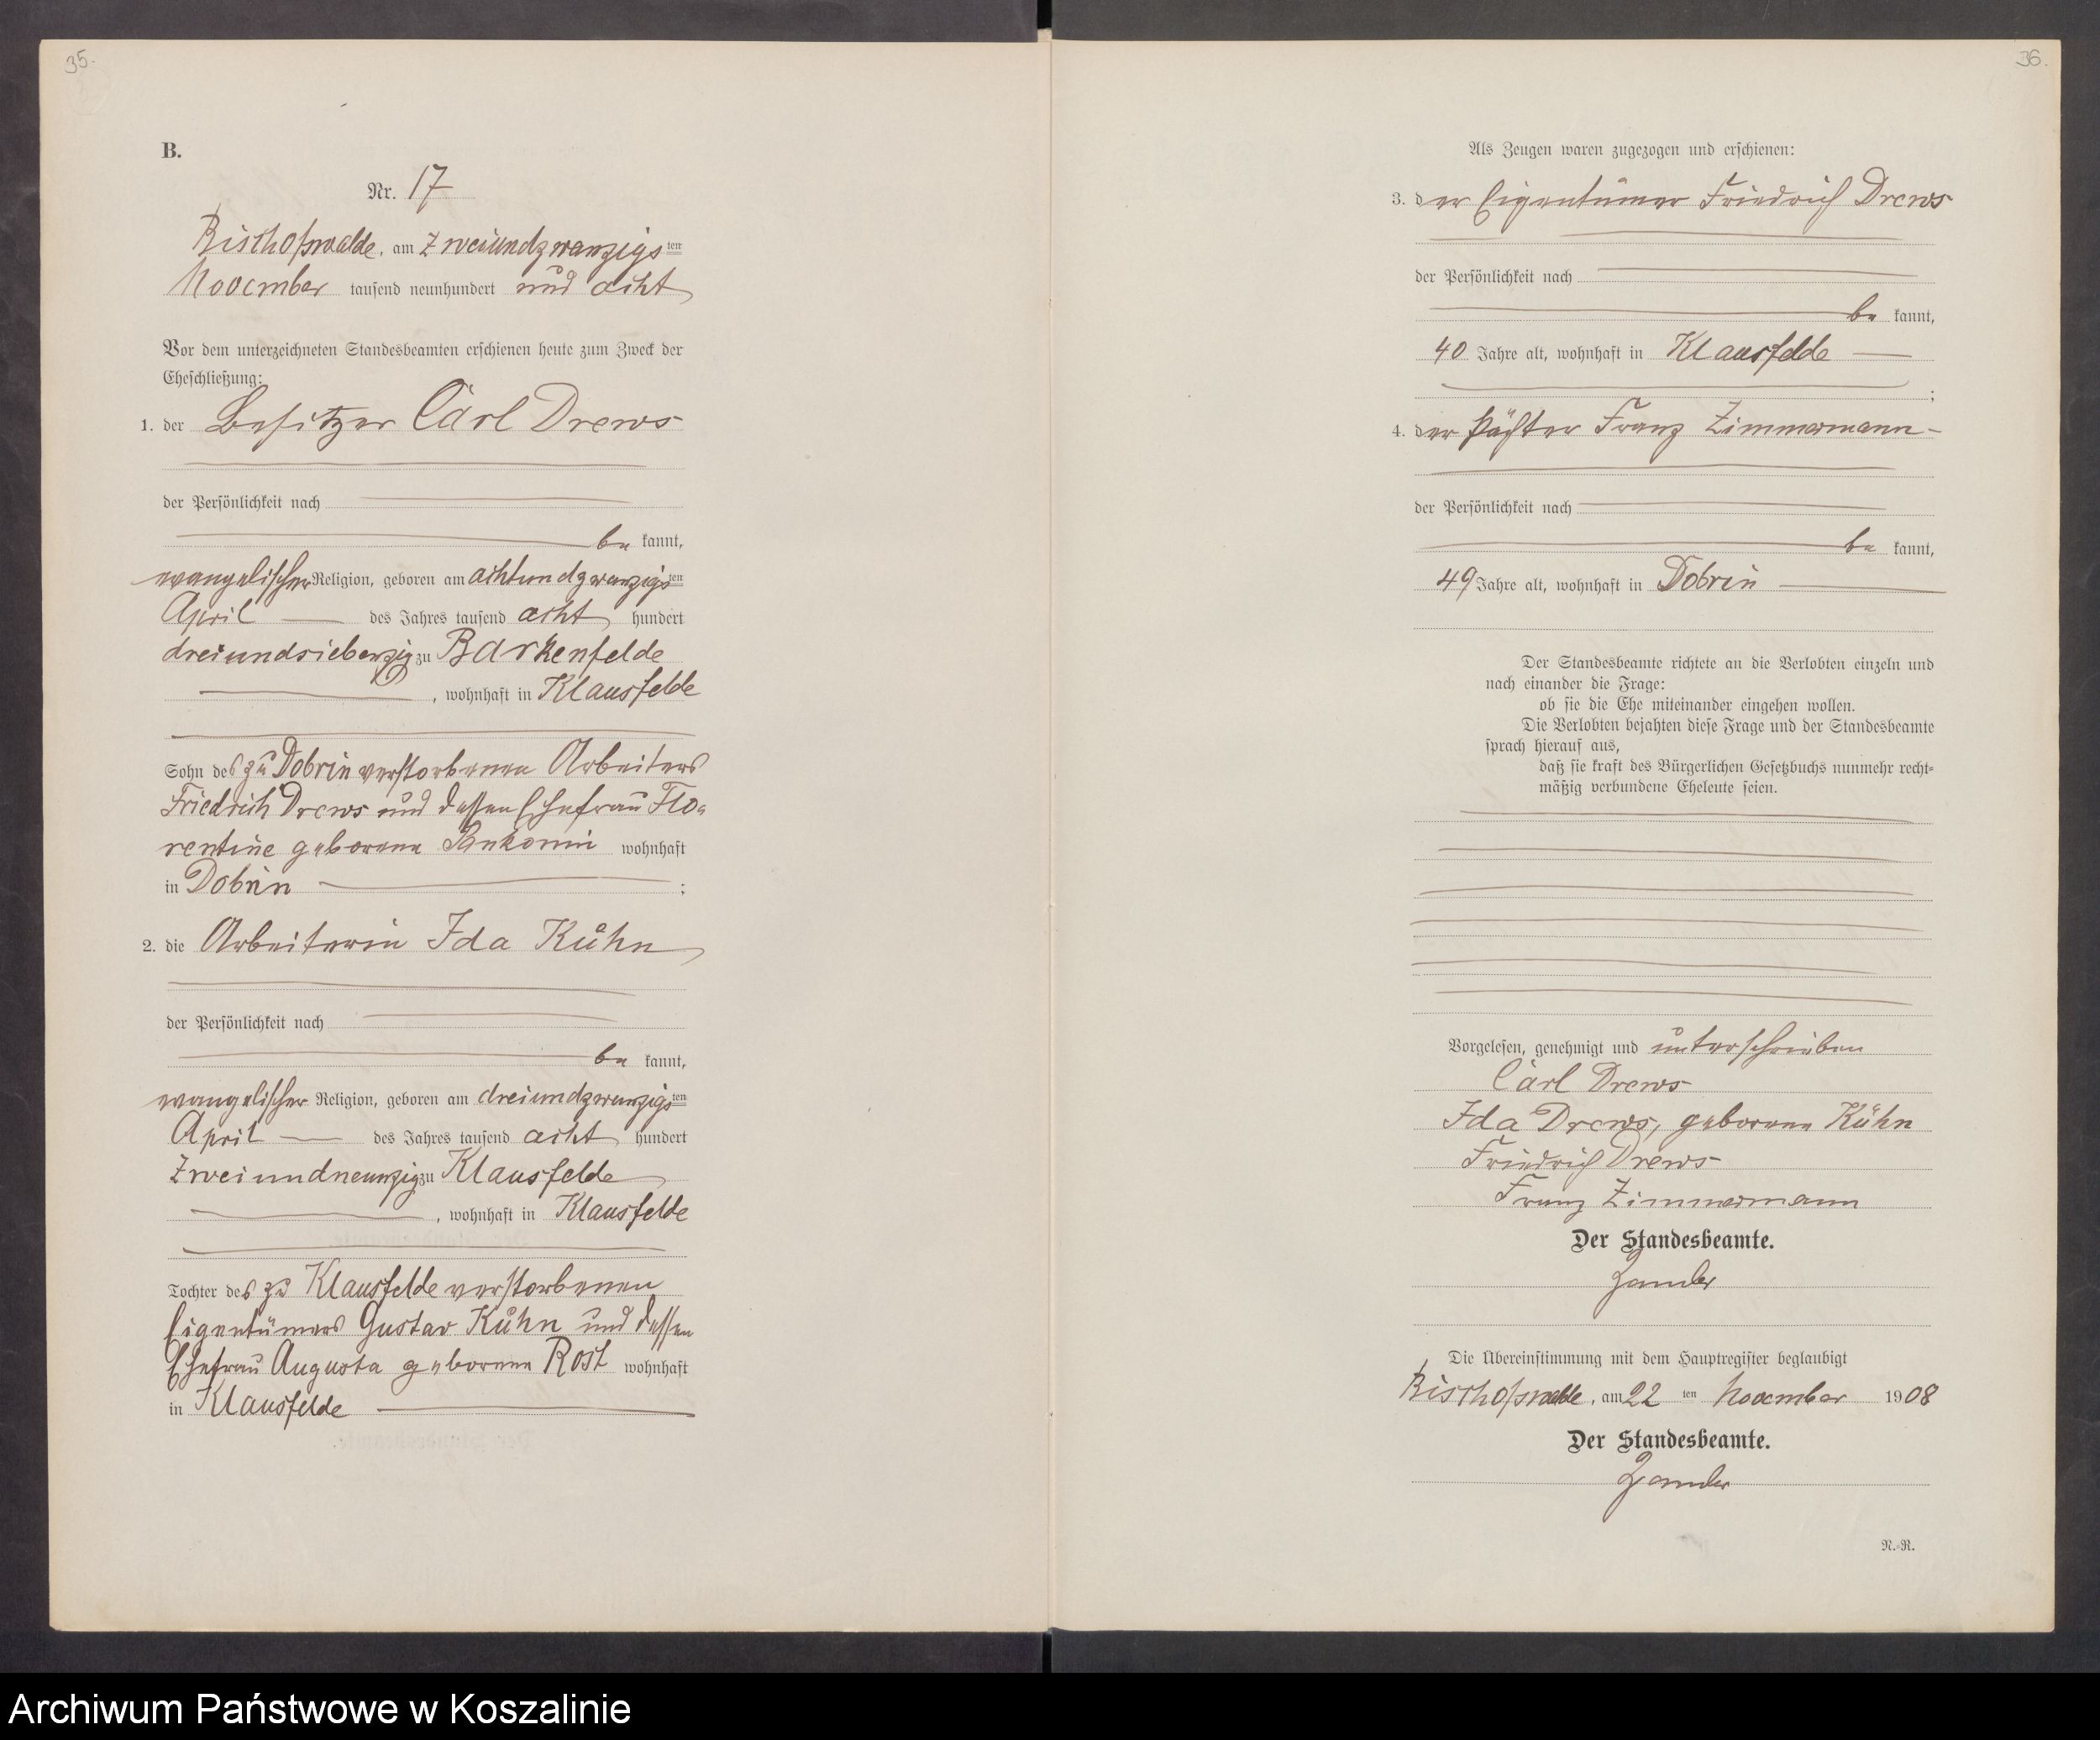 35.
B.
Nr. 17
Bischofswalde, am zweiundzwanzigs ten
November tausend neunhundert und acht
Vor dem unterzeichneten Standesbeamten erschienen heute zum Zweck der
Eheschließung:
1. der Besitzer Carl Drews
der Persönlichkeit nach
be kannt,
evangelischer Religion, geboren am achtundzwanzigs ten
April des Jahres tausend acht hundert
dreiundsiebenzig zu Barkenfelde
, wohnhaft in Klausfelde
Sohn des zu Dobrin verstorbenen Arbeiters
Friedrich Drews und dessen Ehefrau Flo-
rentine geborene wohnhaft
in Dobrin ;
2. die Arbeiterin Ida Kühn
der Persönlichkeit nach
be kannt,
evangelischer Religion, geboren am dreiundzwanzigs ten
April des Jahres tausend acht hundert
zweiundneunzig zu Klausfelde
, wohnhaft in Klausfelde
Tochter des zu Klausfelde verstorbenen
Eigentümers Gustav Kühn und dessen
Ehefrau Augusta geborene Rost wohnhaft
in Klausfelde
36.
Als Zeugen waren zugezogen und erschienen:
3. der Eigentümer Friedrich Drews
der Persönlichkeit nach
be kannt,
40 Jahre alt, wohnhaft in Klausfelde
;
4. der Pächter Franz Zimmermann
der Persönlichkeit nach
be kannt,
49 Jahre alt, wohnhaft in Dobrin
Der Standesbeamte richtete an die Verlobten einzeln und
nach einander die Frage:
ob sie die Ehe miteinander eingehen wollen.
Die Verlobten bejahten diese Frage und der Standesbeamte
sprach hierauf aus,
daß sie kraft des Bürgerlichen Gesetzbuchs nunmehr recht-
mäßig verbundene Eheleute seien.
Vorgelesen, genehmigt und unterschrieben
Carl Drews
Ida Drews, geborene Kühn
Friedrich Drews
Franz Zimmermann
Der Standesbeamte.
Zander
Die Übereinstimmung mit dem Hauptregister beglaubigt
Bischofswalde, am 22 ten November 1908
Der Standesbeamte.
Zander
N.-R.
Archiwum Państwowe w Koszalinie